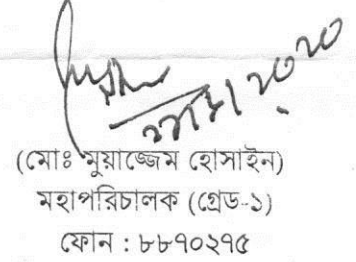 (মোঃ মুয়াজ্জেম হোসাইন)
মহাপরিচালক (গ্রেড-১)
ফোন : ৮৮৭০২৭৫